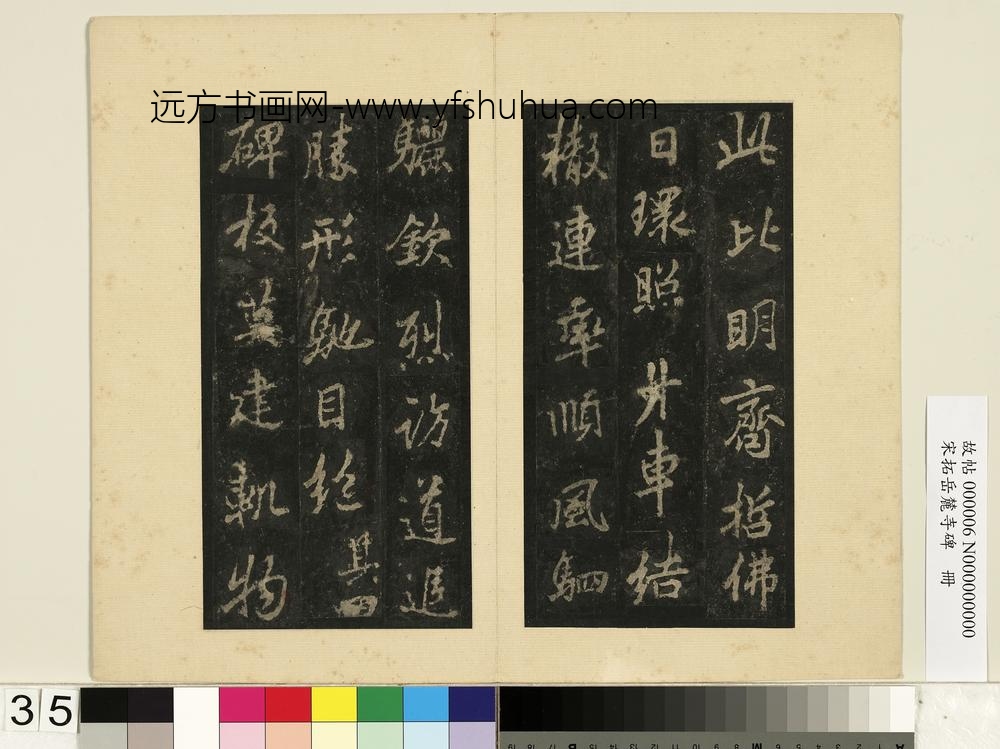 远方书画网-www.yfshuhua.com
此比明齊哲佛
日環照牛車結
轍連率順風駟
驪欽烈訪道追
勝形馳目絶其四
碑板莫建軌物
故帖 000006 N000000000
宋拓岳麓寺碑 冊
35